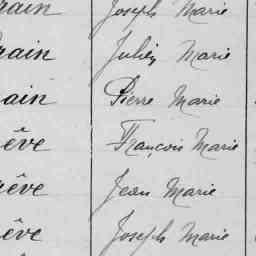 rain Joseph Marie
rain Julien Marie
ain Pierre Marie
êve François Marie
êve Jean Marie
êve Joseph Marie